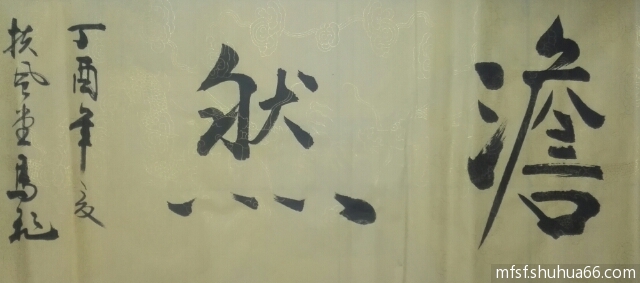 澹然
丁酉年夏
扶风堂馬
mfsfshuhua66.com